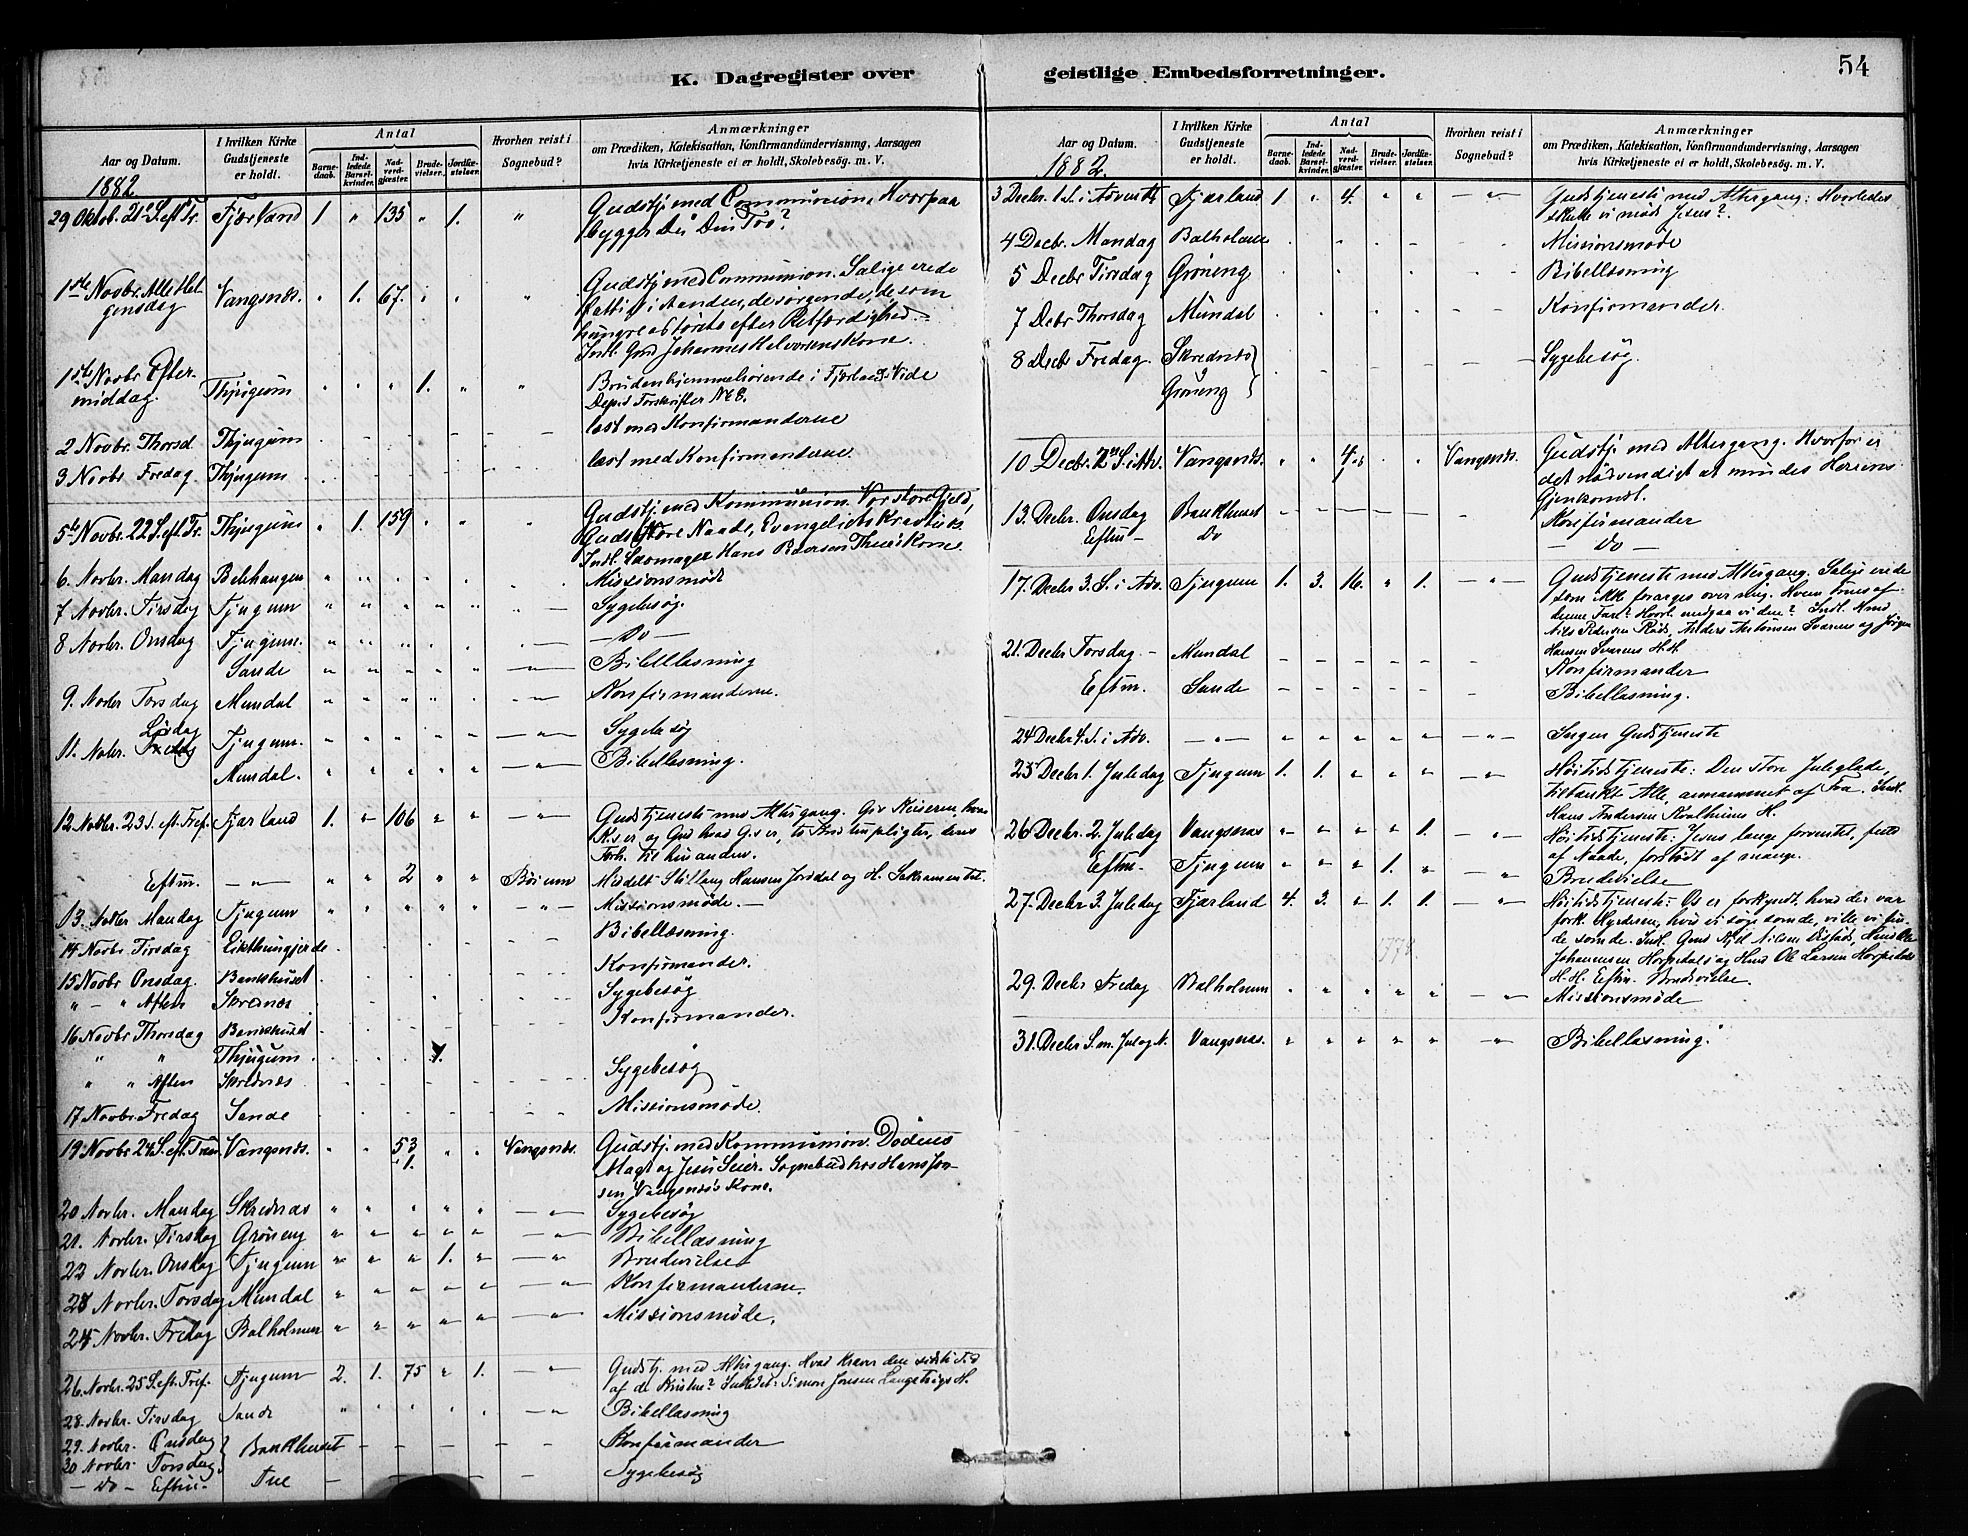 54
K. Dagregister over geistlige Embedsforretninger.
Aar og Datum.
I hvilken Kirke Gudstjeneste er holdt.
Antal
Barnedaab.
Indledede Barselkvinder.
Nadverdgjæster.
Brudevielser.
Jordfæstelser.
Hvorhen reist i Sognebud?
Anmærkninger
om Prædiken, Katekisation, Konfirmandundervisning, Aarsagen
hvis Kirketjeneste ei er holdt, Skolebesøg. m. V.
1882
29 Oktob. 21 S. eft Tr. Fjærland 1. " 135 " 1. " Gudstj med Communion, Hvorpaa
bygger Du Din Tro?
1ste Novbr. Alle Helgensdag Vangsnæs. " 1. 67. " " " Gudstj med Communion. Salige ere de
fattige i Aanden, de sørgende, de som
hungre og tørste efter Retfærdighed.
Indl. Gmd Johannes Halvorsens Kone.
1ste Novbr Eftermiddag. Thjugum " " " 1. " " Bruden hjemmehørende i Fjærland. Vide
Dep.s Forskrifter No 8.
2 Novbr. Thorsd Thjugum læst med Konfirmanderne
3 Novbr. Fredag Thjugum læst med Konfirmanderne
5te Novbr. 22 S. eft Tr. Thjugum " 1. 159 " " " Gudstj med Kommunion. Vor store Gjeld,
Guds store Naade, Evangeliets Kraft
Indl. Hans Pedersen Kone
6. Novbr. Mandag Belehaugen Missionsmøde
7 Novbr. Tirsdag Tjugum Sygebesøg.
8 Novbr. Onsdag Tjugum. — Do —
Sande Bibellæsning
9. Novbr Torsdag Mundal Konfirmanderne.
11. Nobr. Lørdag Tjugum. Sygebesøg
Mundal. Bibellæsning.
12. Novbr. 23 S. eft. Tref. Fjærland 1. " 106 " " — " — Gudstjeneste med Altergang. Giv Keiseren, hvad
K.s er og Gud hvad G.s er, to Pligter, deres
Forh. til hinanden.
Eftm. — " — " " 2 " " Børum Meddelt Hansen Jordal og H. Sakramentet.
13. Novbr Mandag Tjugum Missionsmøde. —
14 Novbr. Tirsdag Bibellæsning.
15 Novbr Onsdag. Bankhuset Konfirmander.
" — " Aften Skrednæs Sygebesøg
16 Novbr Thorsdag Bankhuset Konfirmander.
" " Thjugum 1.
" " Aften Skrednæs Sygebesøg
17 Novbr. Fredag Sande Missionsmøde.
19 Novbr 24 S. eft Tren Vangsnæs. " " 53 " " Vangsnæs. Gudstj. med Kommunion. Dødens
1. Magt og Jesu Seier. Sognebud hos Hans
Vangsnæs Kone.
20 Novbr. Mandag Skrednæs Sygebesøg
21. Novbr. Tirsdag Grøneng Bibellæsning
22 Novbr. Onsdag Tjugum 1. Brudevielse
23 Novbr. Torsdag Mundal Konfirmanderne
24 Novbr. Fredag Balholmen Missionsmøde.
26. Novbr. 25 S. eft. Tref. Tjugum 2. 1. 75 " 1. — " Gudstj. med Altergang. Hvad kræver den sidste Tid
af de Kristne? Indledet: Simon Jonsen H.
28. Novbr. Tirsdag Sande Bibellæsning
29. Novbr. Onsdag Bankhuset Konfirmander
30 Novbr. Torsdag
— Do — Eftm. Tue Sygebesøg
Aar og Datum.
I hvilken Kirke Gudstjeneste er holdt.
Antal
Barnedaab.
Indledede Barselkvinder.
Nadverdgjæster.
Brudevielser.
Jordfæstelser.
Hvorhen reist i Sognebud?
Anmærkninger
om Prædiken, Katekisation, Konfirmandundervisning, Aarsagen
hvis Kirketjeneste ei er holdt, Skolebesøg. m. V.
1882.
3 Decbr. 1. S. i Advent Fjærland 1. " 4. " " — " — Gudstjeneste med Altergang: Hvorledes
skulle vi møde Jesus?
4 Decbr. Mandag Balholmen Missionsmøde
5 Decbr Tirsdag Grøneng Bibellæsning
7 Debr Thorsdag Mundal Konfirmander.
8 Decbr Fredag. Skrednæs Sygebesøg.
Grøneng
10 Decbr. 2 S. i Adv. Vangsnæs. Vangsnæs. Gudstj. med Altergang. Hvorfor er
det nødvendigt at mindes Herrens
Gjenkomst.
13. Decbr. Onsdag Bankhuset Konfirmander
Eftm — Do — Do —
17. Decbr 3. S. i Adv. Tjugum 1. 3. 16. " 1. — " — Gudstjeneste med Altergang. Salige ere de
som ikke forarges over mig. Hvem trues af
denne Fare? Hvorl. undgaa vi den? Indl.
Nils Pedersen Anders Sværen og Jørgen
Hansen Sværens H. H.
21. Decbr Torsdag — Mundal Konfirmander
Eftm. Sande Bibellæsning.
24 Decbr 4. S. i Adv. — " — Ingen Gudstjeneste
25 Decbr 1. Juledag Tjugum 1. 1. " " " — " Høitidstjeneste: Den store Juleglæde,
tiltænkt Alle, annammet af Faa. Indl.
Hans Andersen H.
26 Decbr. 2. Juledag Vangsnæs " " " " 1. — " Høitidstjeneste: Jesus længe forventet, født
af Naade, forstødt af mange.
Eftm. Tjugum " " " 1. " — " Brudevielse
27. Decbr 3. Juledag Fjærland 4. 3. " 1. 1. — " Høitidstjeneste: Os er forkyndt, hvad der var
fork. Hyrderne, hvis vi søge som de, ville vi finde
som de. Indl. Nilsen
Johannesen og Hmd Ole Larsen
H. H. Eftm. Brudevielse.
29. Decbr Fredag Balholmen Missionsmøde
31. Decbr S. m. Jul og N. Vangsnæs. Bibellæsning.